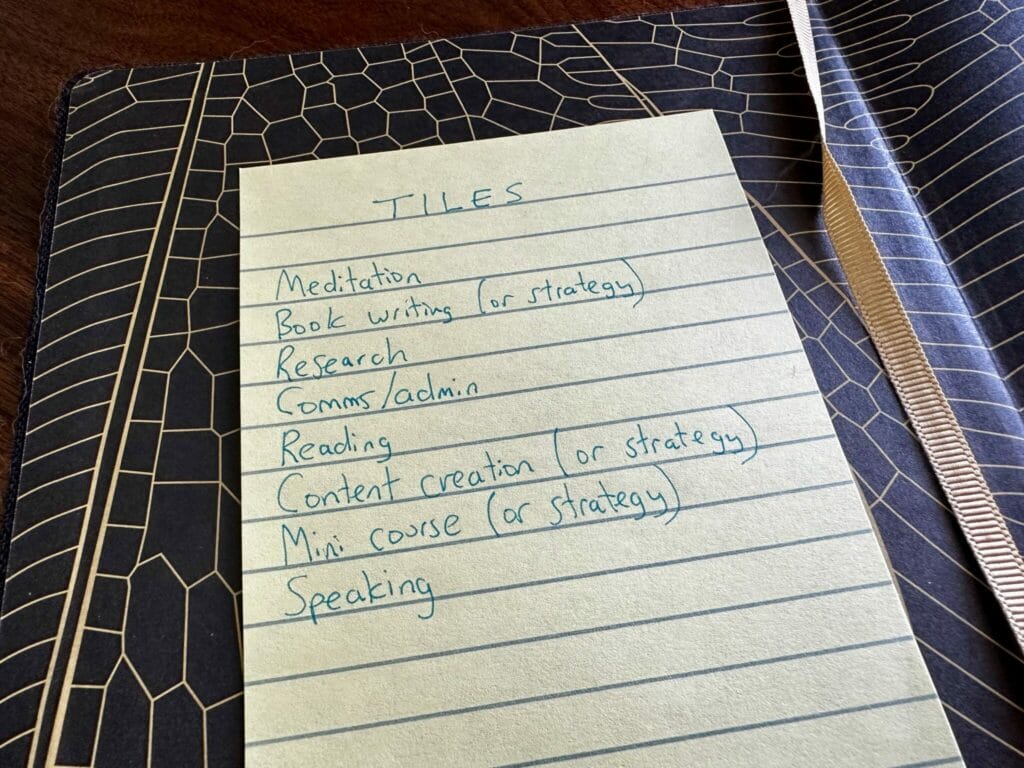 TILES
Meditation
Book writing (or strategy)
Research
Comms/admin
Reading
Content creation (or strategy)
Mini course (or strategy)
Speaking